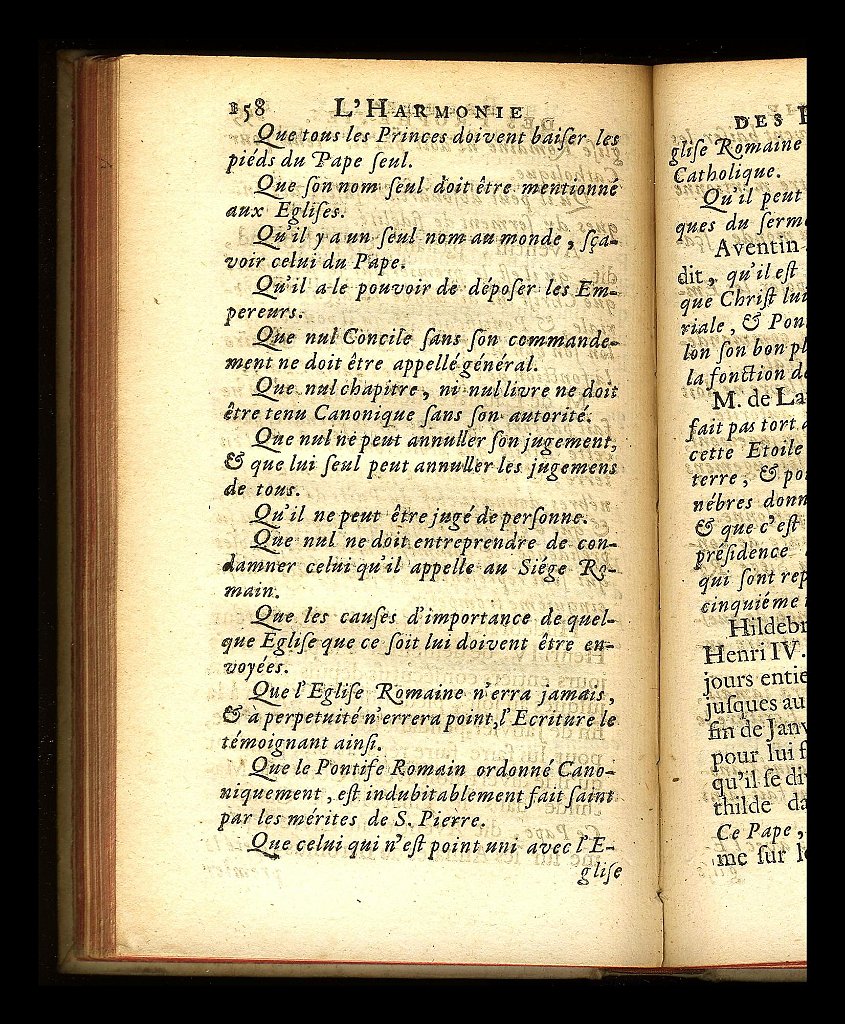 158 L'HARMONIE
Que tous les Princes doivent baiſer les
piéds du Pape ſeul.
Que ſon nom ſeul doit être mentionné
aux Egliſes.
Qu'il y a un ſeul nom au monde, ſça-
voir celui du Pape.
Qu'il a le pouvoir de dépoſer les Em-
pereurs.
Que nul Concile ſans ſon commande-
ment ne doit être appellé général.
Que nul chapitre, ni nul livre ne doit
être tenu Canonique ſans ſon autorité.
Que nul ne peut annuller ſon jugement,
& que lui ſeul peut annuller les jugemens
de tous.
Qu'il ne peut être jugé de perſonne.
Que nul ne doit entreprendre de con-
damner celui qu'il appelle au Siége Ro-
main.
Que les cauſes d'importance de quel-
que Egliſe que ce ſoit lui doivent être en-
voyées.
Que l'Egliſe Romaine n'erra jamais,
& à perpetuité n'errera point, l'Ecriture le
témoignant ainſi.
Que le Pontife Romain ordonné Cano-
niquement, eſt indubitablement fait ſaint
par les mérites de S. Pierre.
Que celui qui n'eſt point uni avec l'E-
gliſe
DES
gliſe Romaine
Catholique.
Qu'il peut
ques du ſerm
Aventin
dit, qu'il eſt
que Chriſt lui
riale, & Pon
lon ſon bon pl
la fonction d
M. de La
fait pas tort
cette Etoile
terre, & po
nébres donn
& que c'eſt
préſidence
qui ſont rep
cinquiéme
Hildebr
Henri IV.
jours entie
juſques au
fin de Janv
pour lui f
qu'il ſe di
thilde da
Ce Pape,
me ſur l